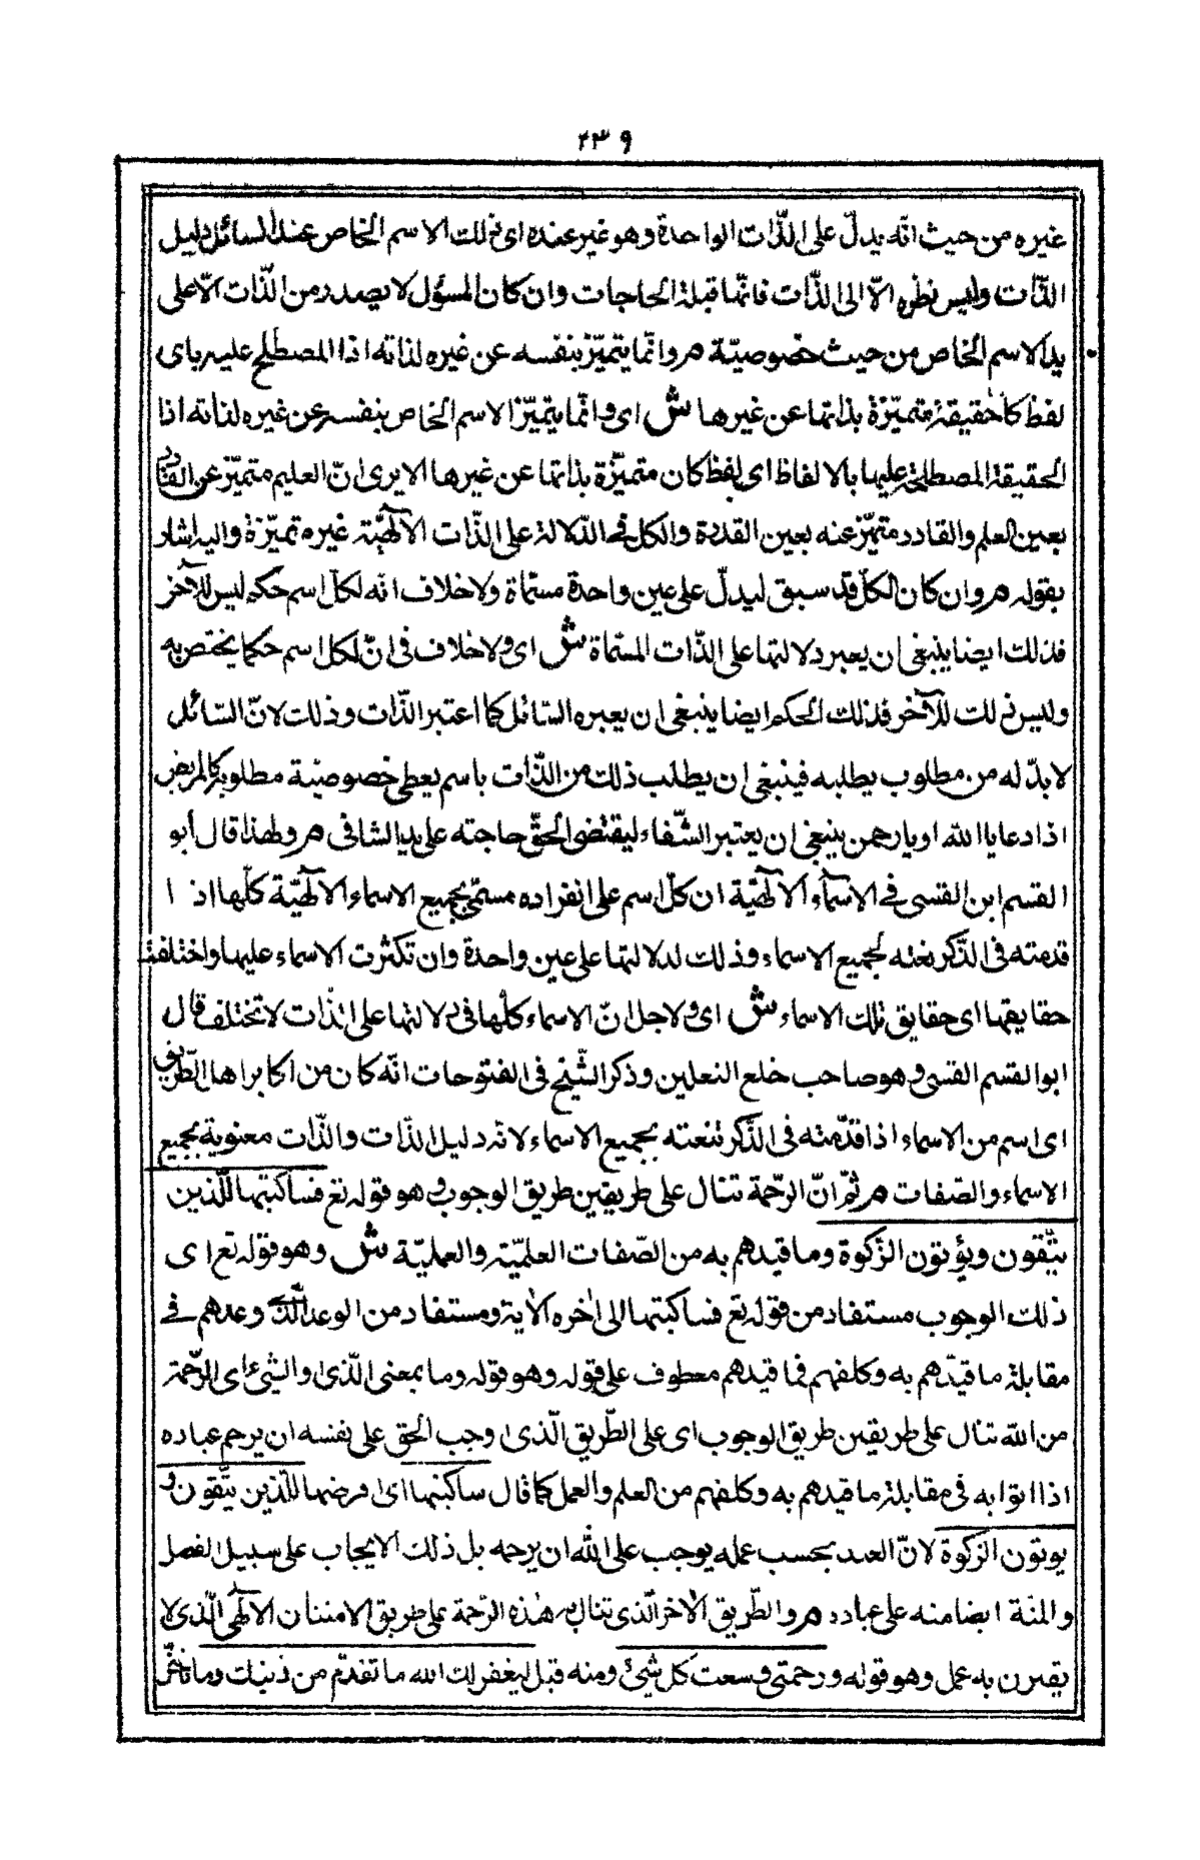 ٤٣٩
غيره من حيث انه يدلّ على الذّات الواحدة وهو غير عنده اى ذلك الاسم الخاص عند السائل دليل
الذّات وليس نظره الّا الى الذّات فانّها قبلة الحاجات وان كان المسؤل لا يصدر من الذّات الّا على
يد الاسم الخاص من حيث خصوصيّة م وانّما يتميّز بنفسه عن غيره لذاته اذا المصطلح عليه باى
لفظ كا حقيقة متميّزة بذاتها عن غيرها ش اى وانّما يتميّز الاسم الخاص بنفسه عن غيره لذاته اذا
الحقيقة المصطلحة عليها بالالفاظ اى لفظ كان متميّزة بذاتها عن غيرها الا يرى انّ العليم متميّز عن القادر
بعين العلم والقادر متميّز عنه بعين القدرة والكل فى الدّلالة على الذّات الآلهيّة غيره تميّزة واليه اشار
بقوله م وان كان الكلّ قد سبق ليدلّ على عين واحدة مسمّاة ولا خلاف انّه لكلّ اسم حكم ليس للآخر
فذلك ايضا ينبغى ان يعبر دلالتها على الذّات المسمّاة ش اى ولا خلاف فى انّ لكل اسم حكما يختص به
وليس ذلك للآخر فذلك الحكم ايضا ينبغى ان يعبره السّائل كما اعتبر الذّات وذلك لانّ السّائل
لا بدّ له من مطلوب يطلبه فينبغى ان يطلب ذلك من الذّات باسم يعطى خصوصيّة مطلوبه كالمريض
اذا دعا يا الله او يا رحمن ينبغى ان يعتبر الشّفاء ليقضى الحقّ حاجته على يد الشافى م ولهذا قال أبو
القسم ابن القسى فى الاسمآء الآلهيّة ان كلّ اسم على انفراده مسمّى بجميع الاسماء الآلهيّة كلّها اذا
قدمته فى الذّكر نعته بجميع الاسماء وذلك لدلالتها على عين واحدة وان تكثرت الاسماء عليها واختلفت
حقايقها اى حقايق تلك الاسماء ش اى ولاجل انّ الاسماء كلّها فى دلالتها على الذّات لا تختلف قال
ابو القسم القسى وهو صاحب خلع النعلين وذكر الشّيخ فى الفتوحات انّه كان من اكابر اهل الطّريق
اى اسم من الاسماء اذا قدّمته فى الذّكر تنعته بجميع الاسماء لانه دليل الذّات والذّات معنوية بجميع
الاسماء والصّفات م ثمّ انّ الرّحمة تنال على طريقين طريق الوجوب وهو قوله تع فساكبتها للّذين
يتّقون ويؤتون الزّكوة وما قيدهم به من الصّفات العلميّة والعمليّة ش وهو قوله تع اى
ذلك الوجوب مستفاد من قوله تع فساكبتها الى اخره الآية ومستفاد من الوعد الّذى وعدهم فى
مقابلة ما قيدّهم به وكلفهم فما قيدهم معطوف على قوله وهو قوله وما بمعنى الّذى والشئ اى الرّحمة
من الله تنال على طريقين طريق الوجوب اى على الطّريق الّذى اوجب الحق على نفسه ان يرحم عباده
اذا اتوا به فى مقابلة ما قيدهم به وكلفهم من العلم والعمل كما قال ساكبتها اى فرضها للّذين يتّقون و
يوتون الزّكوة لانّ العبد بحسب عمله يوجب على الله ان يرحمه بل ذلك الايجاب على سبيل الفضل
والمنة ايضا منه على عباده م والطّريق الاخر الّذى تنال به هذه الرّحمة على طريق الامتنان الآلهى الّذى لا
يقترن به عمل وهو قوله ورحمتى وسعت كل شئ ومنه قيل ليغفر لك الله ما تقدّم من ذنبك وما تأخّر